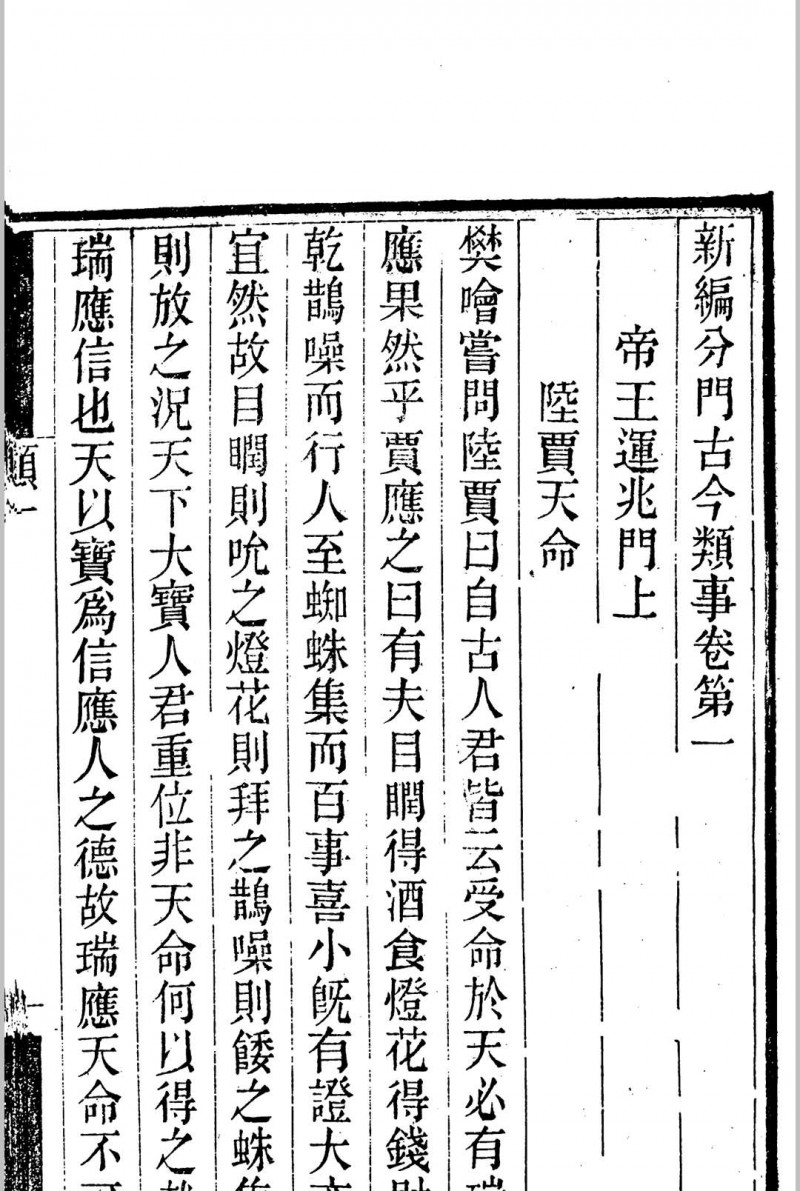 新編分門古今類事卷第一
帝王運兆門上
陸賈天命
樊噲嘗問陸賈曰自古人君皆云受命於天必有瑞
應果然乎賈應之曰有夫目瞤得酒食燈花得錢財
乾鵲噪而行人至蜘蛛集而百事喜小旣有證大亦
宜然故目瞤則吮之燈花則拜之鵲噪則餧之蛛集
則放之況天下大寶人君重位非天命何以得之哉
瑞應信也天以寶爲信應人之德故瑞應天命不可
類一